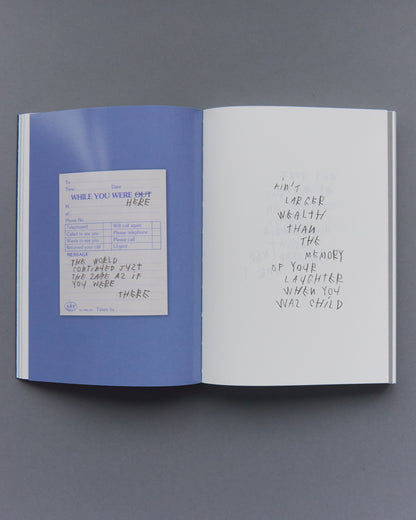 To
Time Date
WHILE YOU WERE OUT
HERE
M
of
Phone No.
Telephoned Will call again
Called to see you Please telephone
Wants to see you Please call
Returned your call Urgent
MESSAGE
THE WORLD
CONTINUED JUST
THE SAME AS IF
YOU WERE
THERE
Taken by
AIN'T
LARGER
WEALTH
THAN
THE
MEMORY
OF YOUR
LAUGHTER
WHEN YOU
WAS CHILD